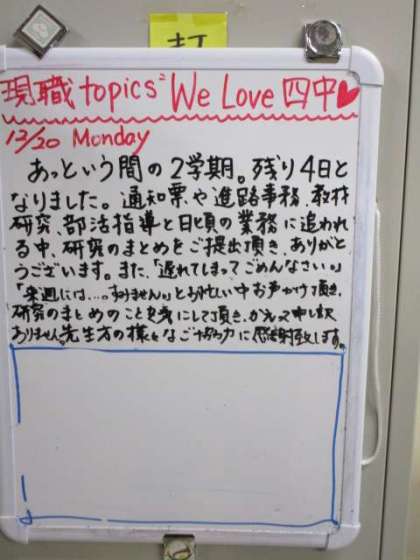 現職topics "We Love 四中♥
12/20 Monday
あっという間の2学期。残り4日と
なりました。通知票や進路事務、教材
研究、部活指導と日頃の業務に追われ
る中、研究のまとめをご提出頂き、ありがと
うございます。また、「遅れてしまってごめんなさい。」
「来週には…。すみません。」とお忙しい中お声かけ頂き、
研究のまとめのことを気にして頂き、かえって申し訳
ありません。先生方の様々なご協力に感謝致します。